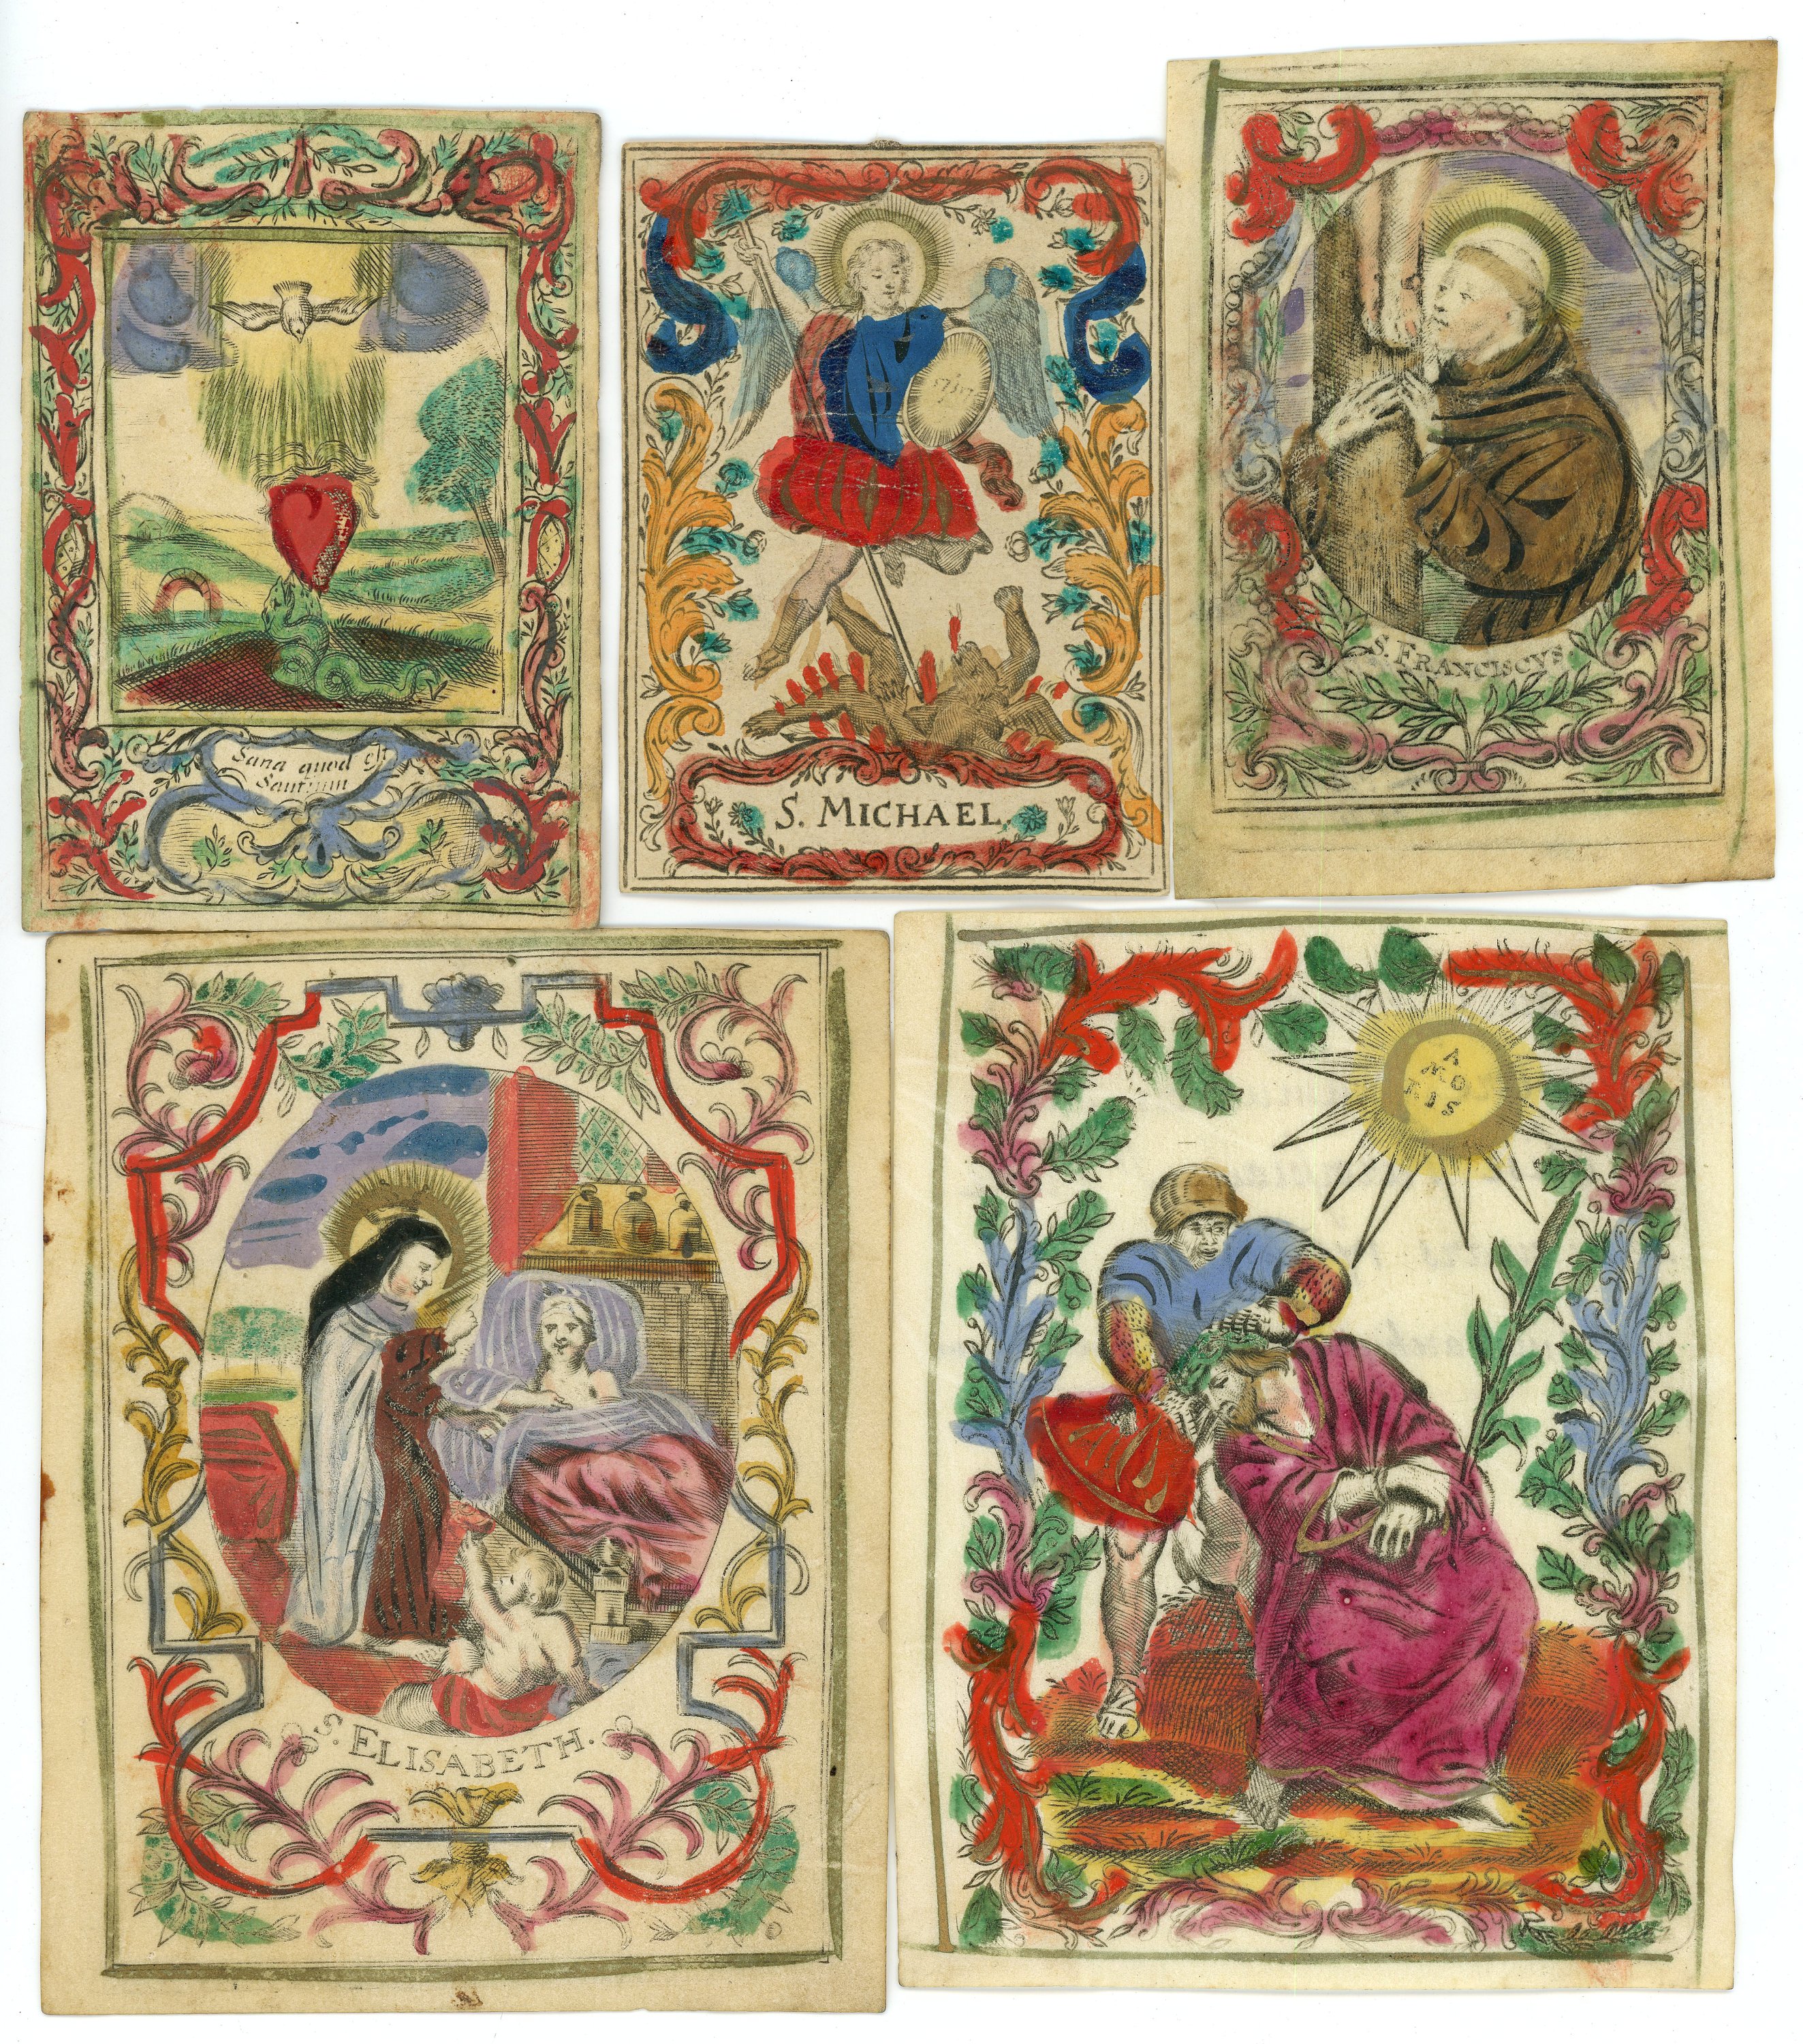 Sana quod est
Sautium
S. MICHAEL.
S. FRANCISCVS
S. ELISABETH.
A
MO
RIS